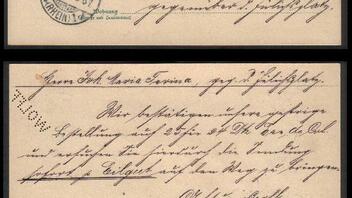 (RHEIN) 1
Wohnung
gegenüber d. Jülichsplatz.
Herrn Joh. Maria Farina, geg. d. Jülichsplatz.
WOLFF
Wir bestätigen unsere gestrige
Bestellung auf 25/ 24 Dtz. Eau de Col
und ersuchen Sie hierdurch die Sendung
sofort p. Eilgut auf den Weg zu bringen.